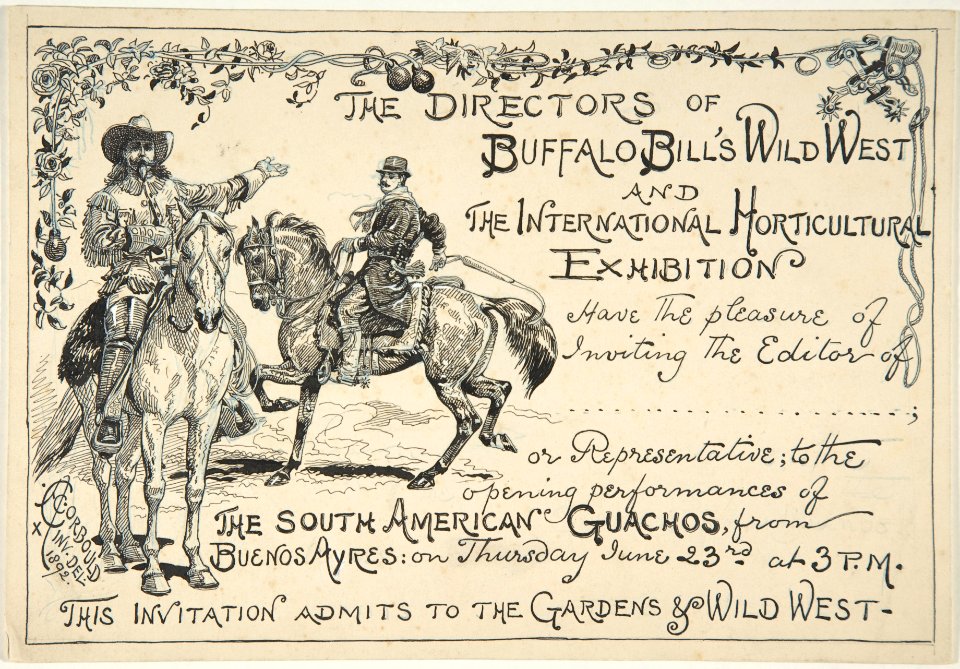 THE DIRECTORS OF
BUFFALO BILL'S WILD WEST
AND
THE INTERNATIONAL HORTICULTURAL
EXHIBITION
Have The pleasure of
Inviting The Editor of
....................................;
or Representative; to the
opening performances of
THE SOUTH AMERICAN GUACHOS, from
BUENOS AYRES: on Thursday June 23rd at 3 P.M.
THIS INVITATION ADMITS TO THE GARDENS & WILD WEST-
A CORBOULD
INV. DEL
1892.